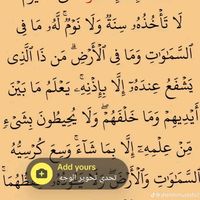 لَا تَأْخُذُهُۥ سِنَةٌ وَلَا نَوْمٌ ۚ لَّهُۥ مَا فِى
السَّمَٰوَٰتِ وَمَا فِى الْأَرْضِ ۗ مَن ذَا الَّذِى
يَشْفَعُ عِندَهُۥٓ إِلَّا بِإِذْنِهِۦ ۚ يَعْلَمُ مَا بَيْنَ
أَيْدِيهِمْ وَمَا خَلْفَهُمْ ۖ وَلَا يُحِيطُونَ بِشَىْءٍ
مِّنْ عِلْمِهِۦٓ إِلَّا بِمَا شَآءَ ۚ وَسِعَ كُرْسِيُّهُ
السَّمَٰوَٰتِ وَالْأَرْضَ
Add yours
تحدي تحوير الوجه